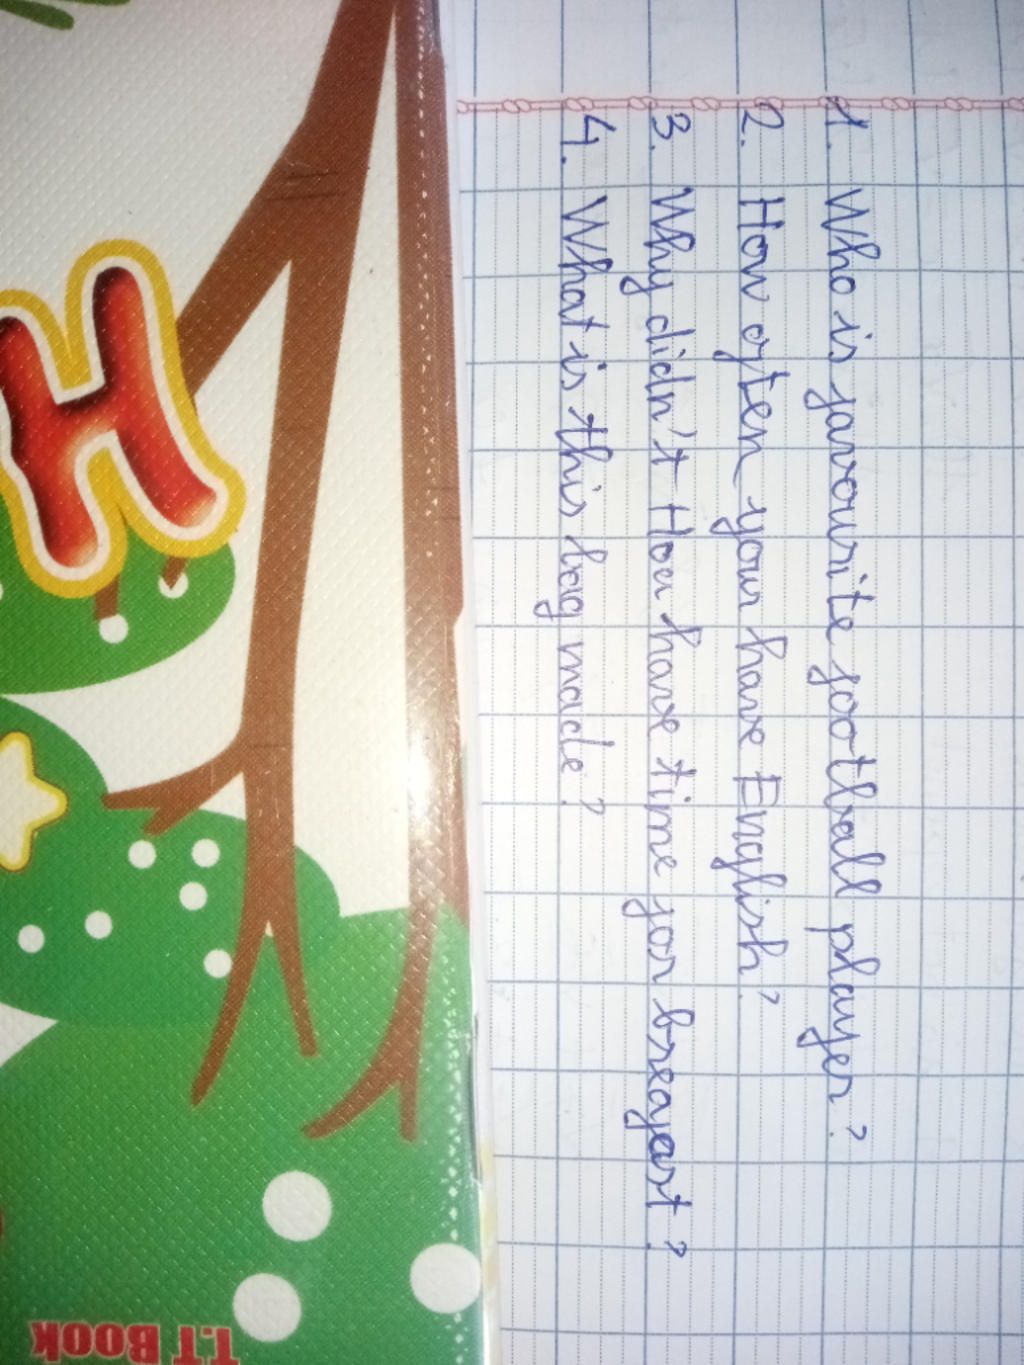 1. Who is favourite football player?
2. How often your have English?
3. Why didn't How have time for breafast?
4. What is this bag made?
H
T.T BOOK